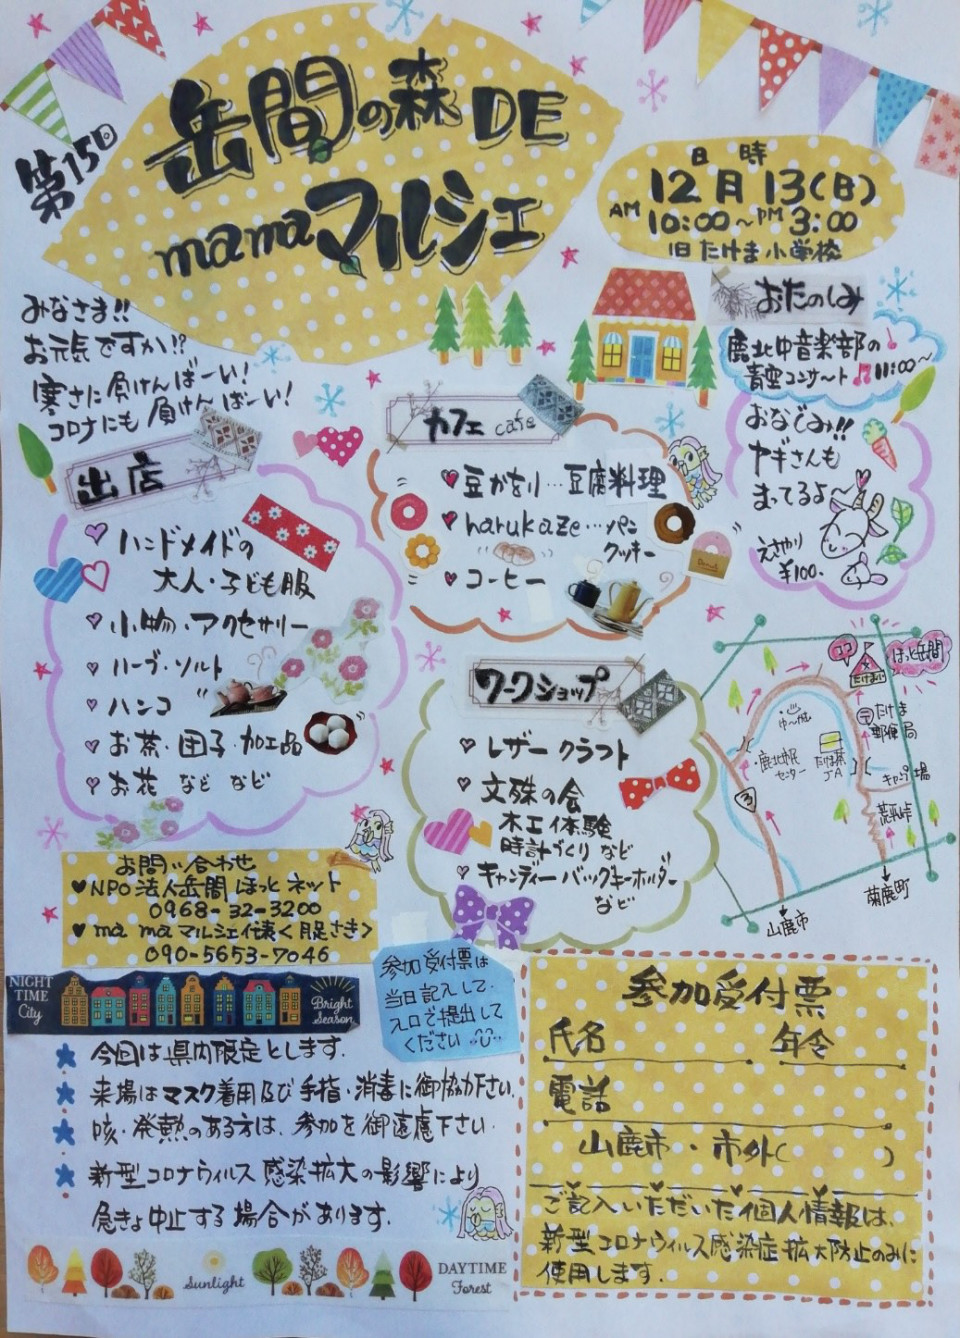 第15回
岳間の森DE
mamaマルシェ
日時
12月13(日)
AM 10:00~PM 3:00
旧たけま小学校
みなさま!!
お元気ですか!?
寒さに負けんばーい!
コロナにも負けんばーい!
おたのしみ
鹿北中音楽部の
青空コンサート 11:00~
おなじみ!!
ヤギさんも
まってるよ
えさやり
¥100.
カフェ cafe
豆かをり…豆腐料理
harukaze…パン
クッキー
コーヒー
Donut
出店
ハンドメイドの
大人・子ども服
小物・アクセサリー
ハーブ・ソルト
ハンコ
お茶・団子・加工品
お花 など など
ワークショップ
レザークラフト
文殊の会
木工体験
時計づくり など
キャンディーバックキーホルダー
など
ココ
ほっと岳間
たけま小
〒たけま
郵便局
ゆ〜かむ
鹿北市民
センター
たけま茶
JA
キャンプ場
3
山鹿市
菊鹿町
お問い合わせ
NPO法人岳間ほっとネット
0968-32-3200
ma maマルシェ代表
090-5653-7046
参加受付票は
当日記入して、
入口で提出して
ください
NIGHT
TIME
City
Bright
Season
今回は県内限定とします.
来場はマスク着用及び手指・消毒に御協力下さい.
咳・発熱のある方は、参加を御遠慮下さい.
新型コロナウィルス感染拡大の影響により
急きょ中止する場合があります.
Sunlight
DAYTIME
Forest
参加受付票
氏名 年令
電話
山鹿市・市外( )
ご記入いただいた個人情報は、
新型コロナウィルス感染症拡大防止のみに
使用します.